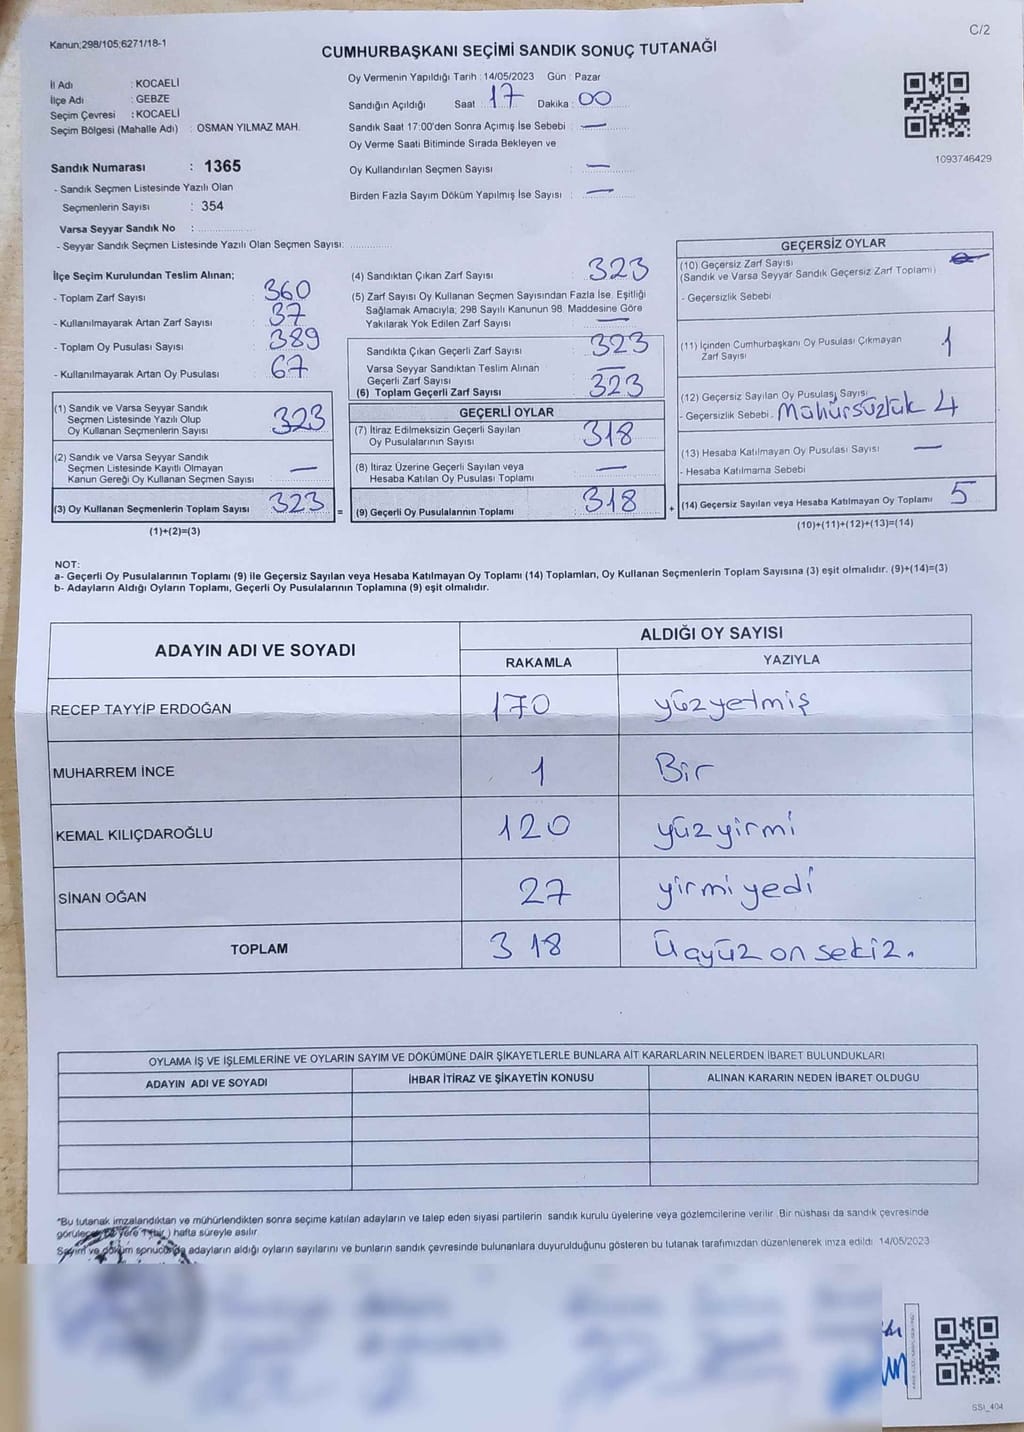 Kanun;298/105;6271/18-1
C/2
CUMHURBAŞKANI SEÇİMİ SANDIK SONUÇ TUTANAĞI
İl Adı : KOCAELİ
İlçe Adı : GEBZE
Seçim Çevresi : KOCAELİ
Seçim Bölgesi (Mahalle Adı) : OSMAN YILMAZ MAH.
Sandık Numarası : 1365
- Sandık Seçmen Listesinde Yazılı Olan
Seçmenlerin Sayısı : 354
Varsa Seyyar Sandık No :
- Seyyar Sandık Seçmen Listesinde Yazılı Olan Seçmen Sayısı:
Oy Vermenin Yapıldığı Tarih : 14/05/2023 Gün : Pazar
Sandığın Açıldığı Saat : 17 Dakika : 00
Sandık Saat 17:00'den Sonra Açımış İse Sebebi : —
Oy Verme Saati Bitiminde Sırada Bekleyen ve
Oy Kullandırılan Seçmen Sayısı : —
Birden Fazla Sayım Döküm Yapılmış İse Sayısı : —
1093746429
İlçe Seçim Kurulundan Teslim Alınan;
- Toplam Zarf Sayısı : 360
- Kullanılmayarak Artan Zarf Sayısı : 37
- Toplam Oy Pusulası Sayısı : 389
- Kullanılmayarak Artan Oy Pusulası : 67
(1) Sandık ve Varsa Seyyar Sandık
Seçmen Listesinde Yazılı Olup
Oy Kullanan Seçmenlerin Sayısı : 323
(2) Sandık ve Varsa Seyyar Sandık
Seçmen Listesinde Kayıtlı Olmayan
Kanun Gereği Oy Kullanan Seçmen Sayısı : —
(3) Oy Kullanan Seçmenlerin Toplam Sayısı : 323 =
(1)+(2)=(3)
(4) Sandıktan Çıkan Zarf Sayısı : 323
(5) Zarf Sayısı Oy Kullanan Seçmen Sayısından Fazla İse, Eşitliği
Sağlamak Amacıyla; 298 Sayılı Kanunun 98. Maddesine Göre
Yakılarak Yok Edilen Zarf Sayısı : —
Sandıkta Çıkan Geçerli Zarf Sayısı : 323
Varsa Seyyar Sandıktan Teslim Alınan
Geçerli Zarf Sayısı : —
(6) Toplam Geçerli Zarf Sayısı : 323
GEÇERLİ OYLAR
(7) İtiraz Edilmeksizin Geçerli Sayılan
Oy Pusulalarının Sayısı : 318
(8) İtiraz Üzerine Geçerli Sayılan veya
Hesaba Katılan Oy Pusulası Toplamı : —
(9) Geçerli Oy Pusulalarının Toplamı : 318 +
GEÇERSİZ OYLAR
(10) Geçersiz Zarf Sayısı
(Sandık ve Varsa Seyyar Sandık Geçersiz Zarf Toplamı)
- Geçersizlik Sebebi :
(11) İçinden Cumhurbaşkanı Oy Pusulası Çıkmayan
Zarf Sayısı : 1
(12) Geçersiz Sayılan Oy Pusulası Sayısı :
- Geçersizlik Sebebi : Mühürsüzlük 4
(13) Hesaba Katılmayan Oy Pusulası Sayısı : —
- Hesaba Katılmama Sebebi
(14) Geçersiz Sayılan veya Hesaba Katılmayan Oy Toplamı : 5
(10)+(11)+(12)+(13)=(14)
NOT:
a- Geçerli Oy Pusulalarının Toplamı (9) ile Geçersiz Sayılan veya Hesaba Katılmayan Oy Toplamı (14) Toplamları, Oy Kullanan Seçmenlerin Toplam Sayısına (3) eşit olmalıdır. (9)+(14)=(3)
b- Adayların Aldığı Oyların Toplamı, Geçerli Oy Pusulalarının Toplamına (9) eşit olmalıdır.
ADAYIN ADI VE SOYADI
ALDIĞI OY SAYISI
RAKAMLA YAZIYLA
RECEP TAYYİP ERDOĞAN 170 yüzyetmiş
MUHARREM İNCE 1 Bir
KEMAL KILIÇDAROĞLU 120 yüzyirmi
SİNAN OĞAN 27 yirmiyedi
TOPLAM 318 Üçyüz on sekiz.
OYLAMA İŞ VE İŞLEMLERİNE VE OYLARIN SAYIM VE DÖKÜMÜNE DAİR ŞİKAYETLERLE BUNLARA AİT KARARLARIN NELERDEN İBARET BULUNDUKLARI
ADAYIN ADI VE SOYADI İHBAR İTİRAZ VE ŞİKAYETİN KONUSU ALINAN KARARIN NEDEN İBARET OLDUĞU
*Bu tutanak imzalandıktan ve mühürlendikten sonra seçime katılan adayların ve talep eden siyasi partilerin sandık kurulu üyelerine veya gözlemcilerine verilir. Bir nüshası da sandık çevresinde
görülecek bir yere 1 (bir) hafta süreyle asılır.
Sayım ve döküm sonucunda adayların aldığı oyların sayılarını ve bunların sandık çevresinde bulunanlara duyurulduğunu gösteren bu tutanak tarafımızdan düzenlenerek imza edildi. 14/05/2023
SSI_404